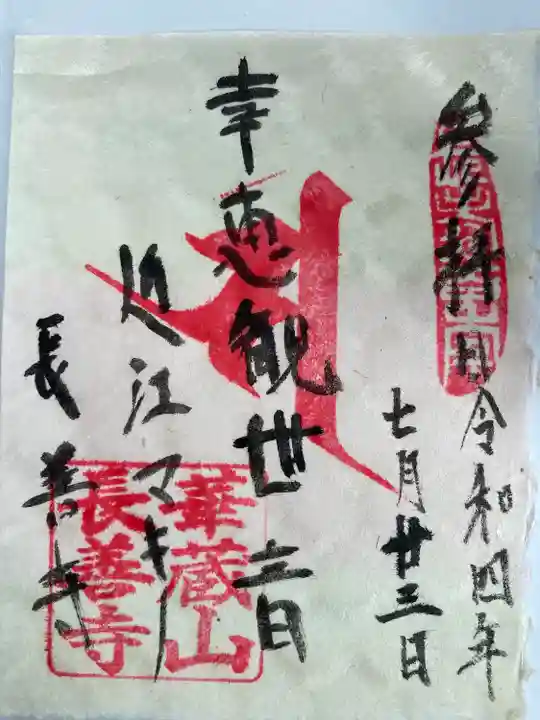 参拝日令和四年
七月廿三日
幸恵観世音
近江マキノ
長善寺
華蔵山
長善寺